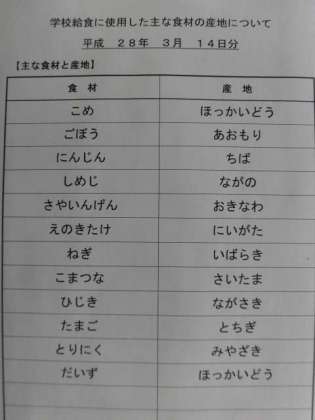 学校給食に使用した主な食材の産地について
平成 28年 3月 14日分
【主な食材と産地】
食材 産地
こめ ほっかいどう
ごぼう あおもり
にんじん ちば
しめじ ながの
さやいんげん おきなわ
えのきたけ にいがた
ねぎ いばらき
こまつな さいたま
ひじき ながさき
たまご とちぎ
とりにく みやざき
だいず ほっかいどう